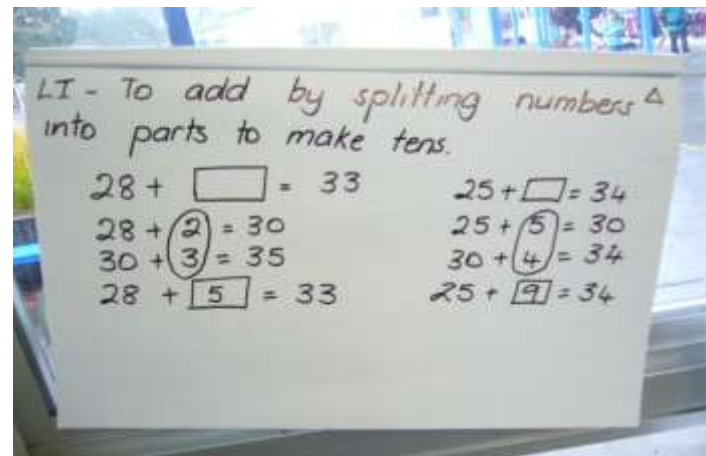 LI - To add by splitting numbers
into parts to make tens.
28 + □ = 33
28 + 2 = 30
30 + 3 = 35
28 + 5 = 33
25 + □ = 34
25 + 5 = 30
30 + 4 = 34
25 + 9 = 34